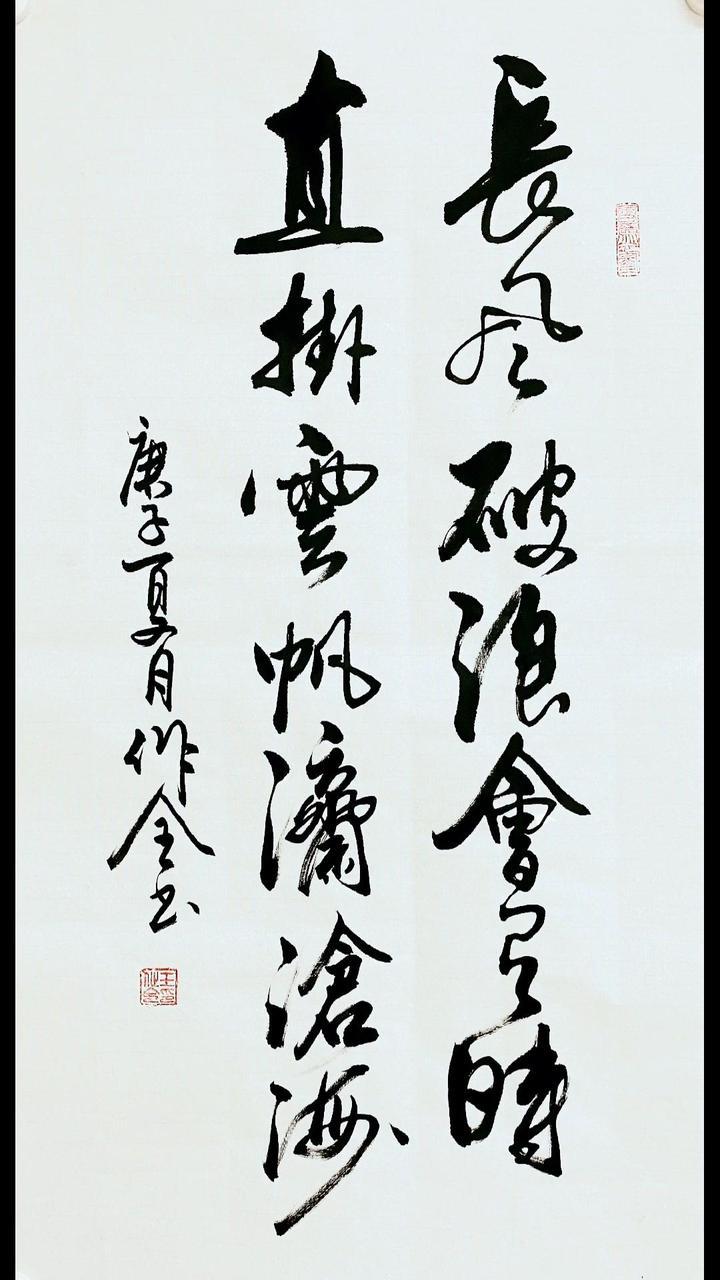 長風破浪會有時
直掛雲帆濟滄海
庚子夏月作全书